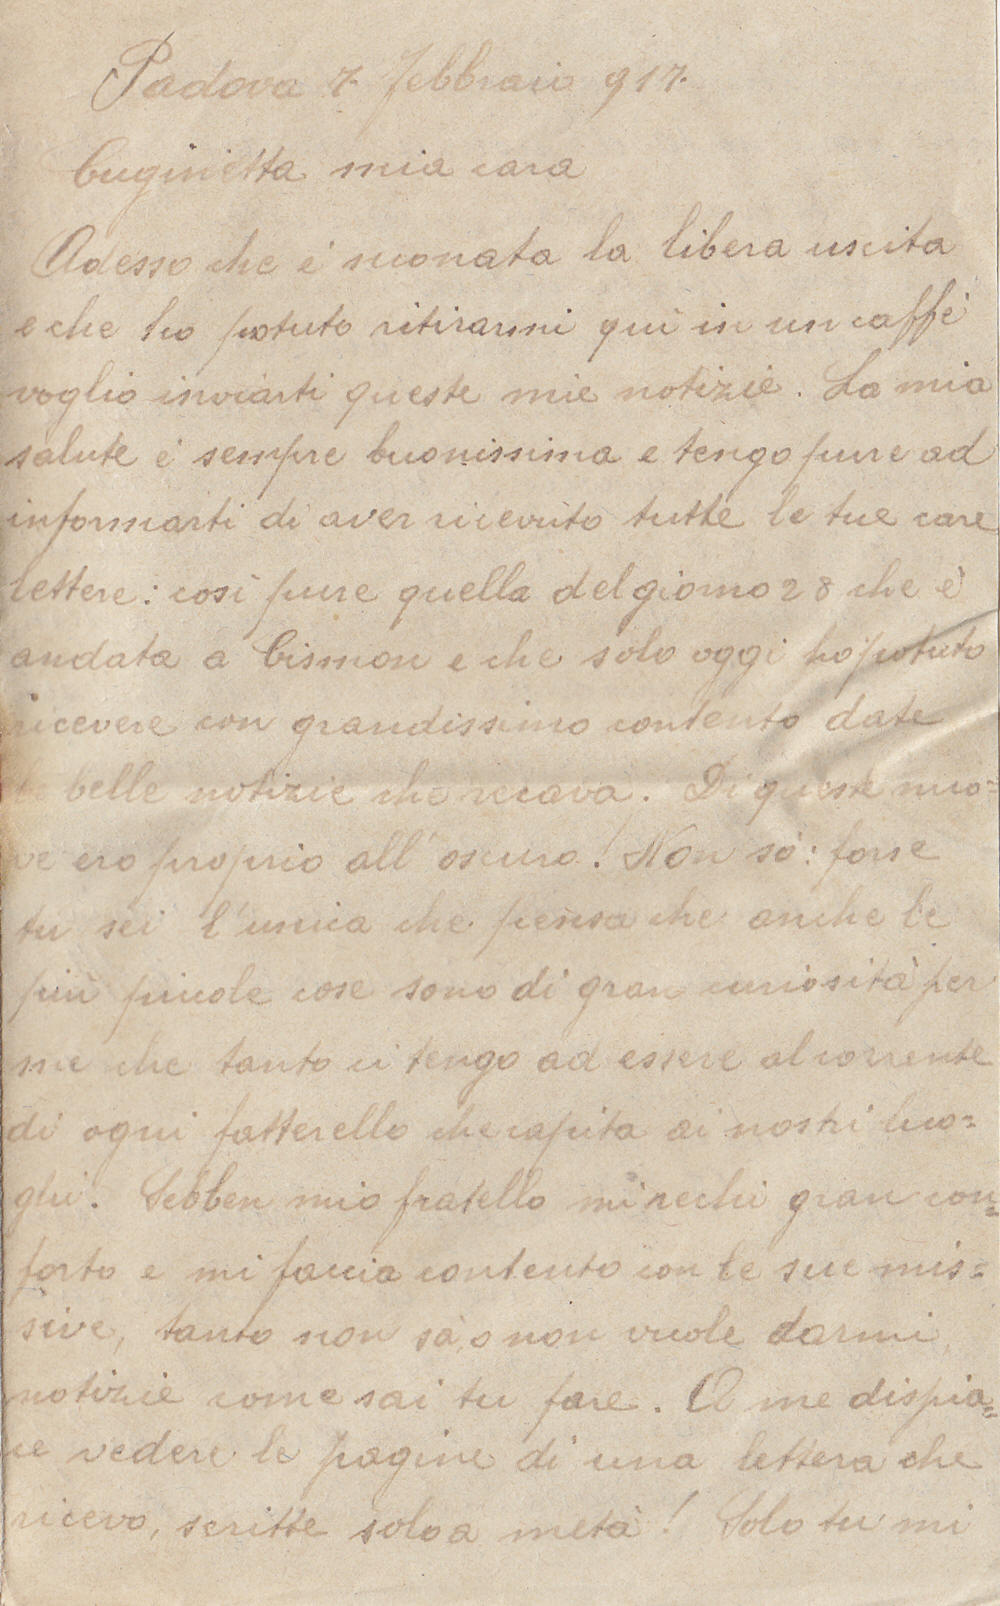 Padova 7. febbraio 917.
Cuginetta mia cara
Adesso che è suonata la libera uscita
e che ho potuto ritirarmi qui in un caffè
voglio inviarti queste mie notizie. La mia
salute è sempre buonissima e tengo pure ad
informarti di aver ricevuto tutte le tue care
lettere: così pure quella del giorno 28 che è
andata a Cismon e che solo oggi ho potuto
ricevere con grandissimo contento date
le belle notizie che recava. Di queste nuo=
ve ero proprio all'oscuro! Non sò: forse
tu sei l'unica che pensa che anche le
più piccole cose sono di gran curiosità per
me che tanto ci tengo ad essere al corrente
di ogni fatterello che capita ai nostri luo=
ghi. Sebben mio fratello mi rechi gran con=
forto e mi faccia contento con le sue mis=
sive, tanto non sà o non vuole darmi
notizie come sai tu fare. A me dispia=
ce vedere le pagine di una lettera che
ricevo, scritte solo a metà! Solo tu mi